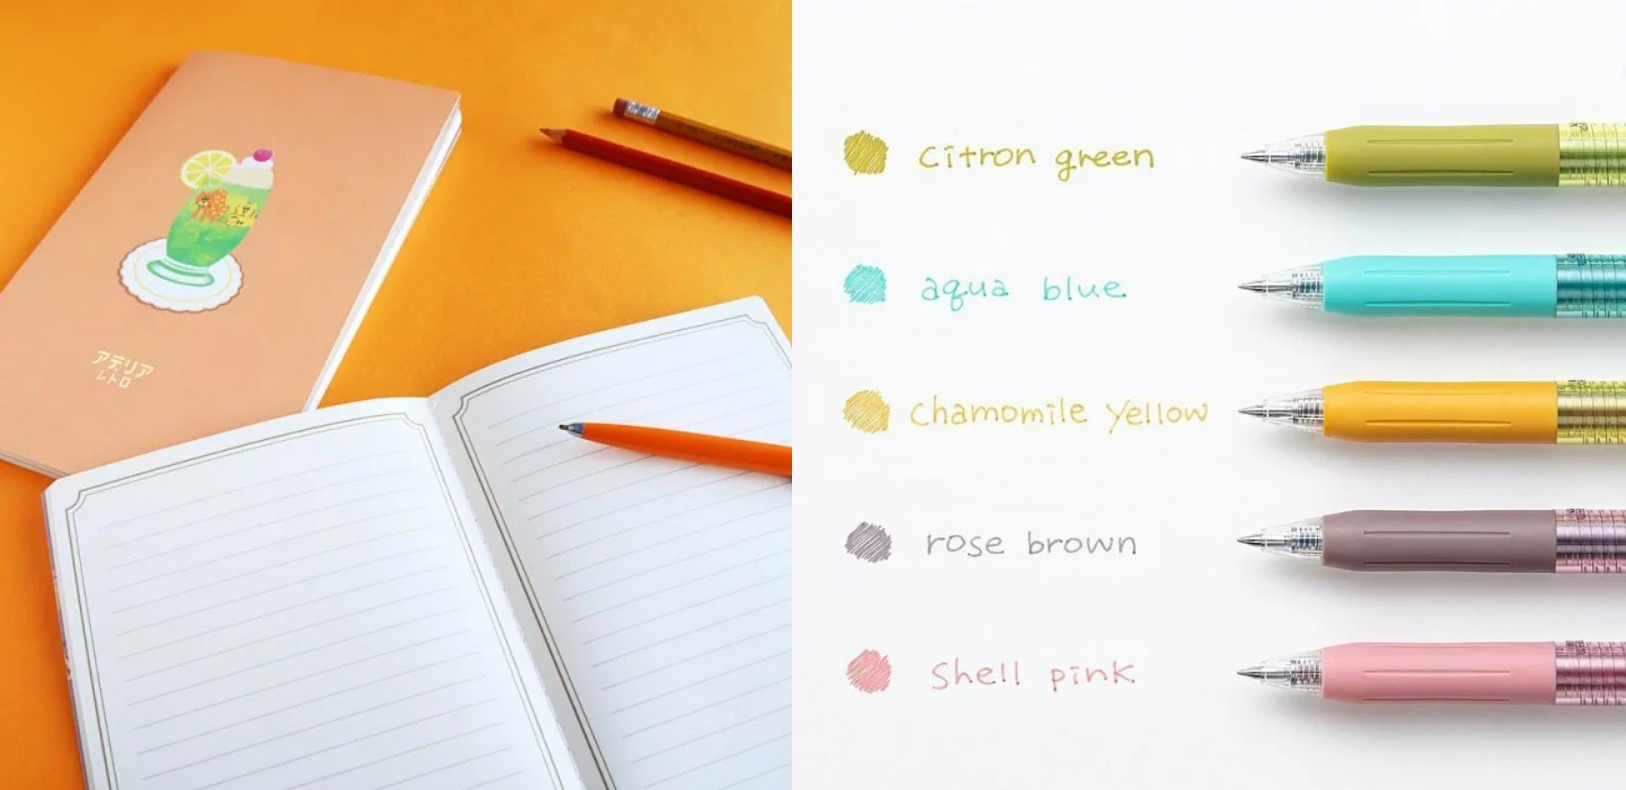 アデリア
レトロ
Citron green
aqua blue
Chamomile yellow
rose brown
Shell pink